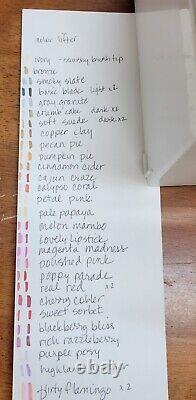 color lifter
ivory - swarsky brush tip
bronze
smoky slate
basic black light x2
gray granite
crumb cake dark x2
soft suede dark x2
copper clay
pecan pie
pumpkin pie
cinnamon cider
cajun craze
calypso coral
petal pink
pale papaya
melon mambo
lovely lipstick
magenta madness
polished pink
poppy parade
real red x2
cherry cobler
sweet sorbet
blackberry bliss
rich razzleberry
purple posy
highland
flirty flamingo x2